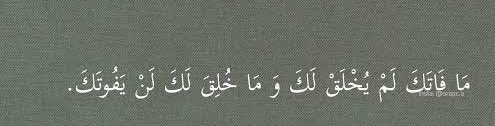 مَا فَاتَكَ لَمْ يُخْلَقْ لَكَ وَ مَا خُلِقَ لَكَ لَنْ يَفُوتَكَ.